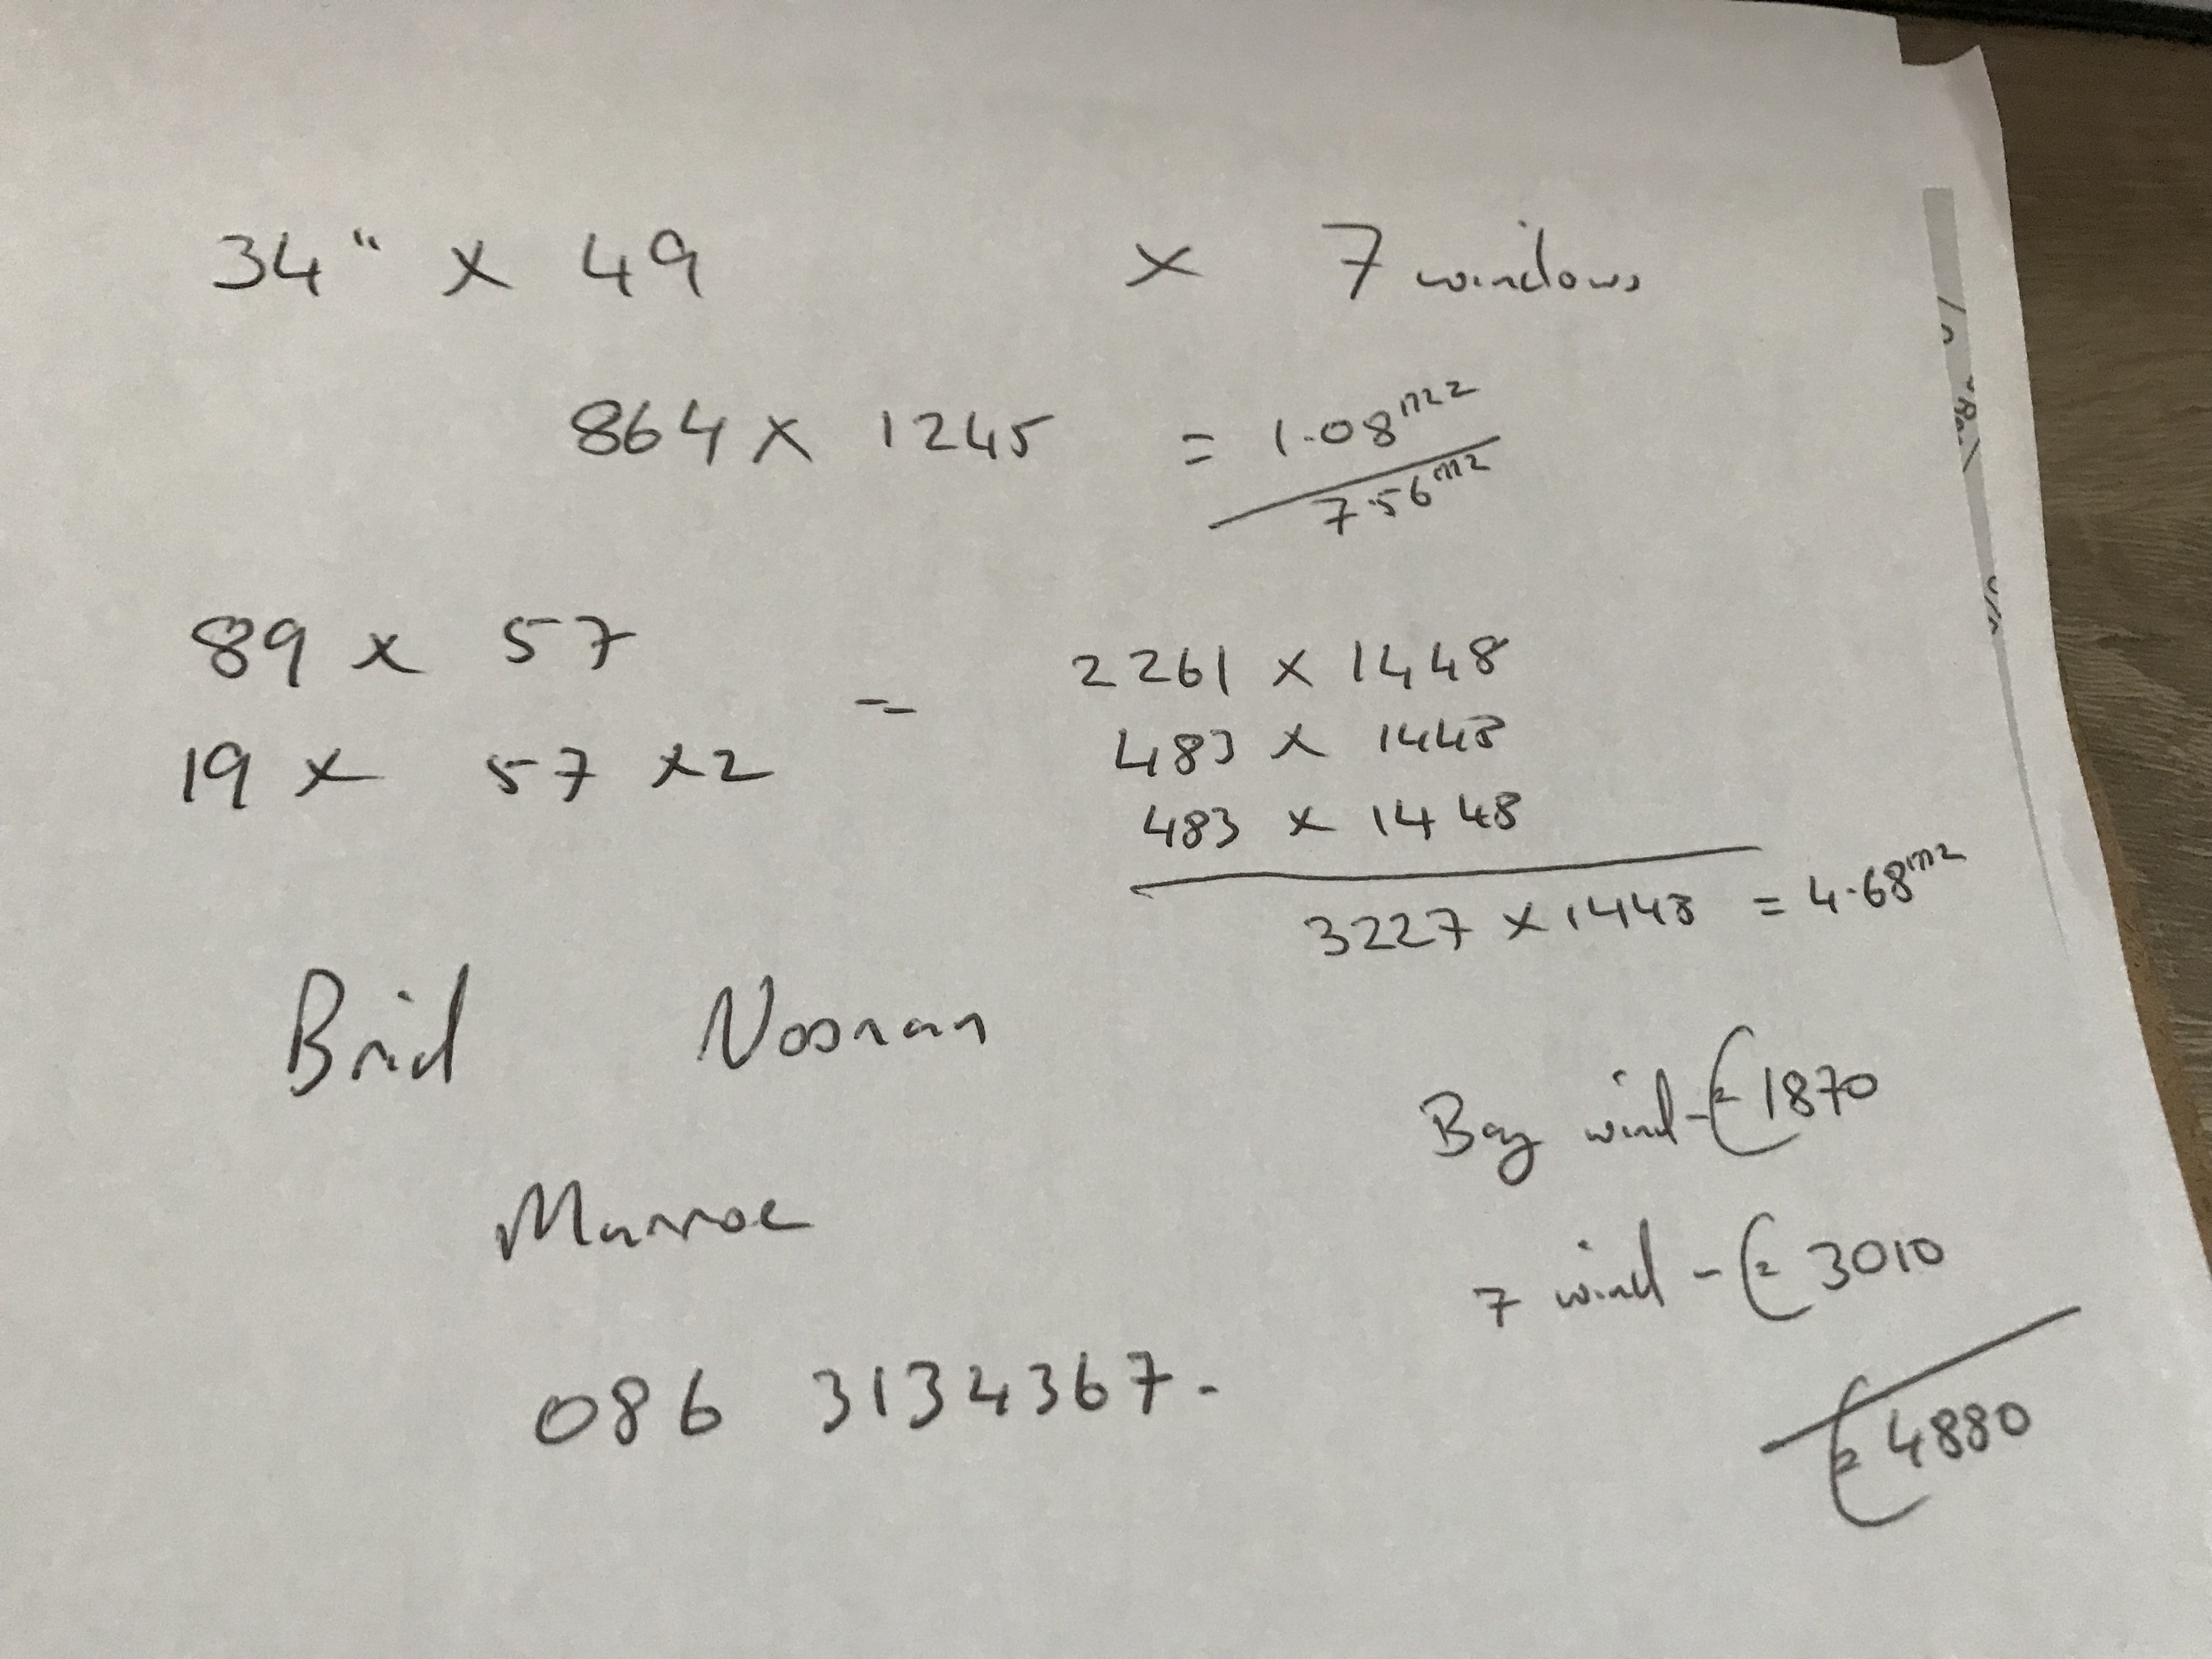 34" x 49 x 7 windows
864 x 1245 = 1.08m2
7.56m2
89 x 57
19 x 57 x2
=
2261 x 1448
483 x 1448
483 x 1448
3227 x 1448 = 4.68m2
Brid Noonan
Murroe
086 3134367.
Bay wind - € 1870
7 wind - € 3010
€ 4880